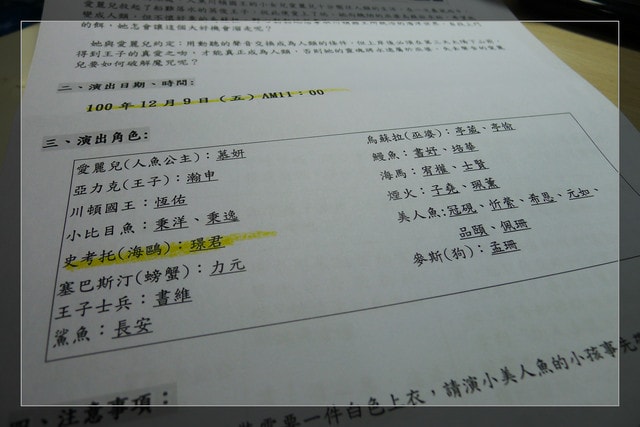 她與愛麗兒約定：用動聽的聲音交換成為人類的條件，但
得到王子的真愛之吻，才能真正成為人類，否則她的
兒要如何破解魔咒呢？
二、演出日期、時間：
100 年 12 月 9 日（五）AM11：00
三、演出角色：
愛麗兒(人魚公主)：慕妍
亞力克(王子)：瀚申
川頓國王：恆佑
小比目魚：秉洋、秉逸
史考托(海鷗)：璟君
塞巴斯汀(螃蟹)：力元
王子士兵：書維
鯊魚：長安
烏蘇拉(巫婆)：亭
鰻魚：書好、培華
海馬：宥權、士賢
煙火：子堯、珮
美人魚：冠硯、忻縈、希恩、元如、
品頤、佩珊
麥斯(狗)：孟珊
四、注意事項：
一件白色上衣，請演小美人魚的小孩事先